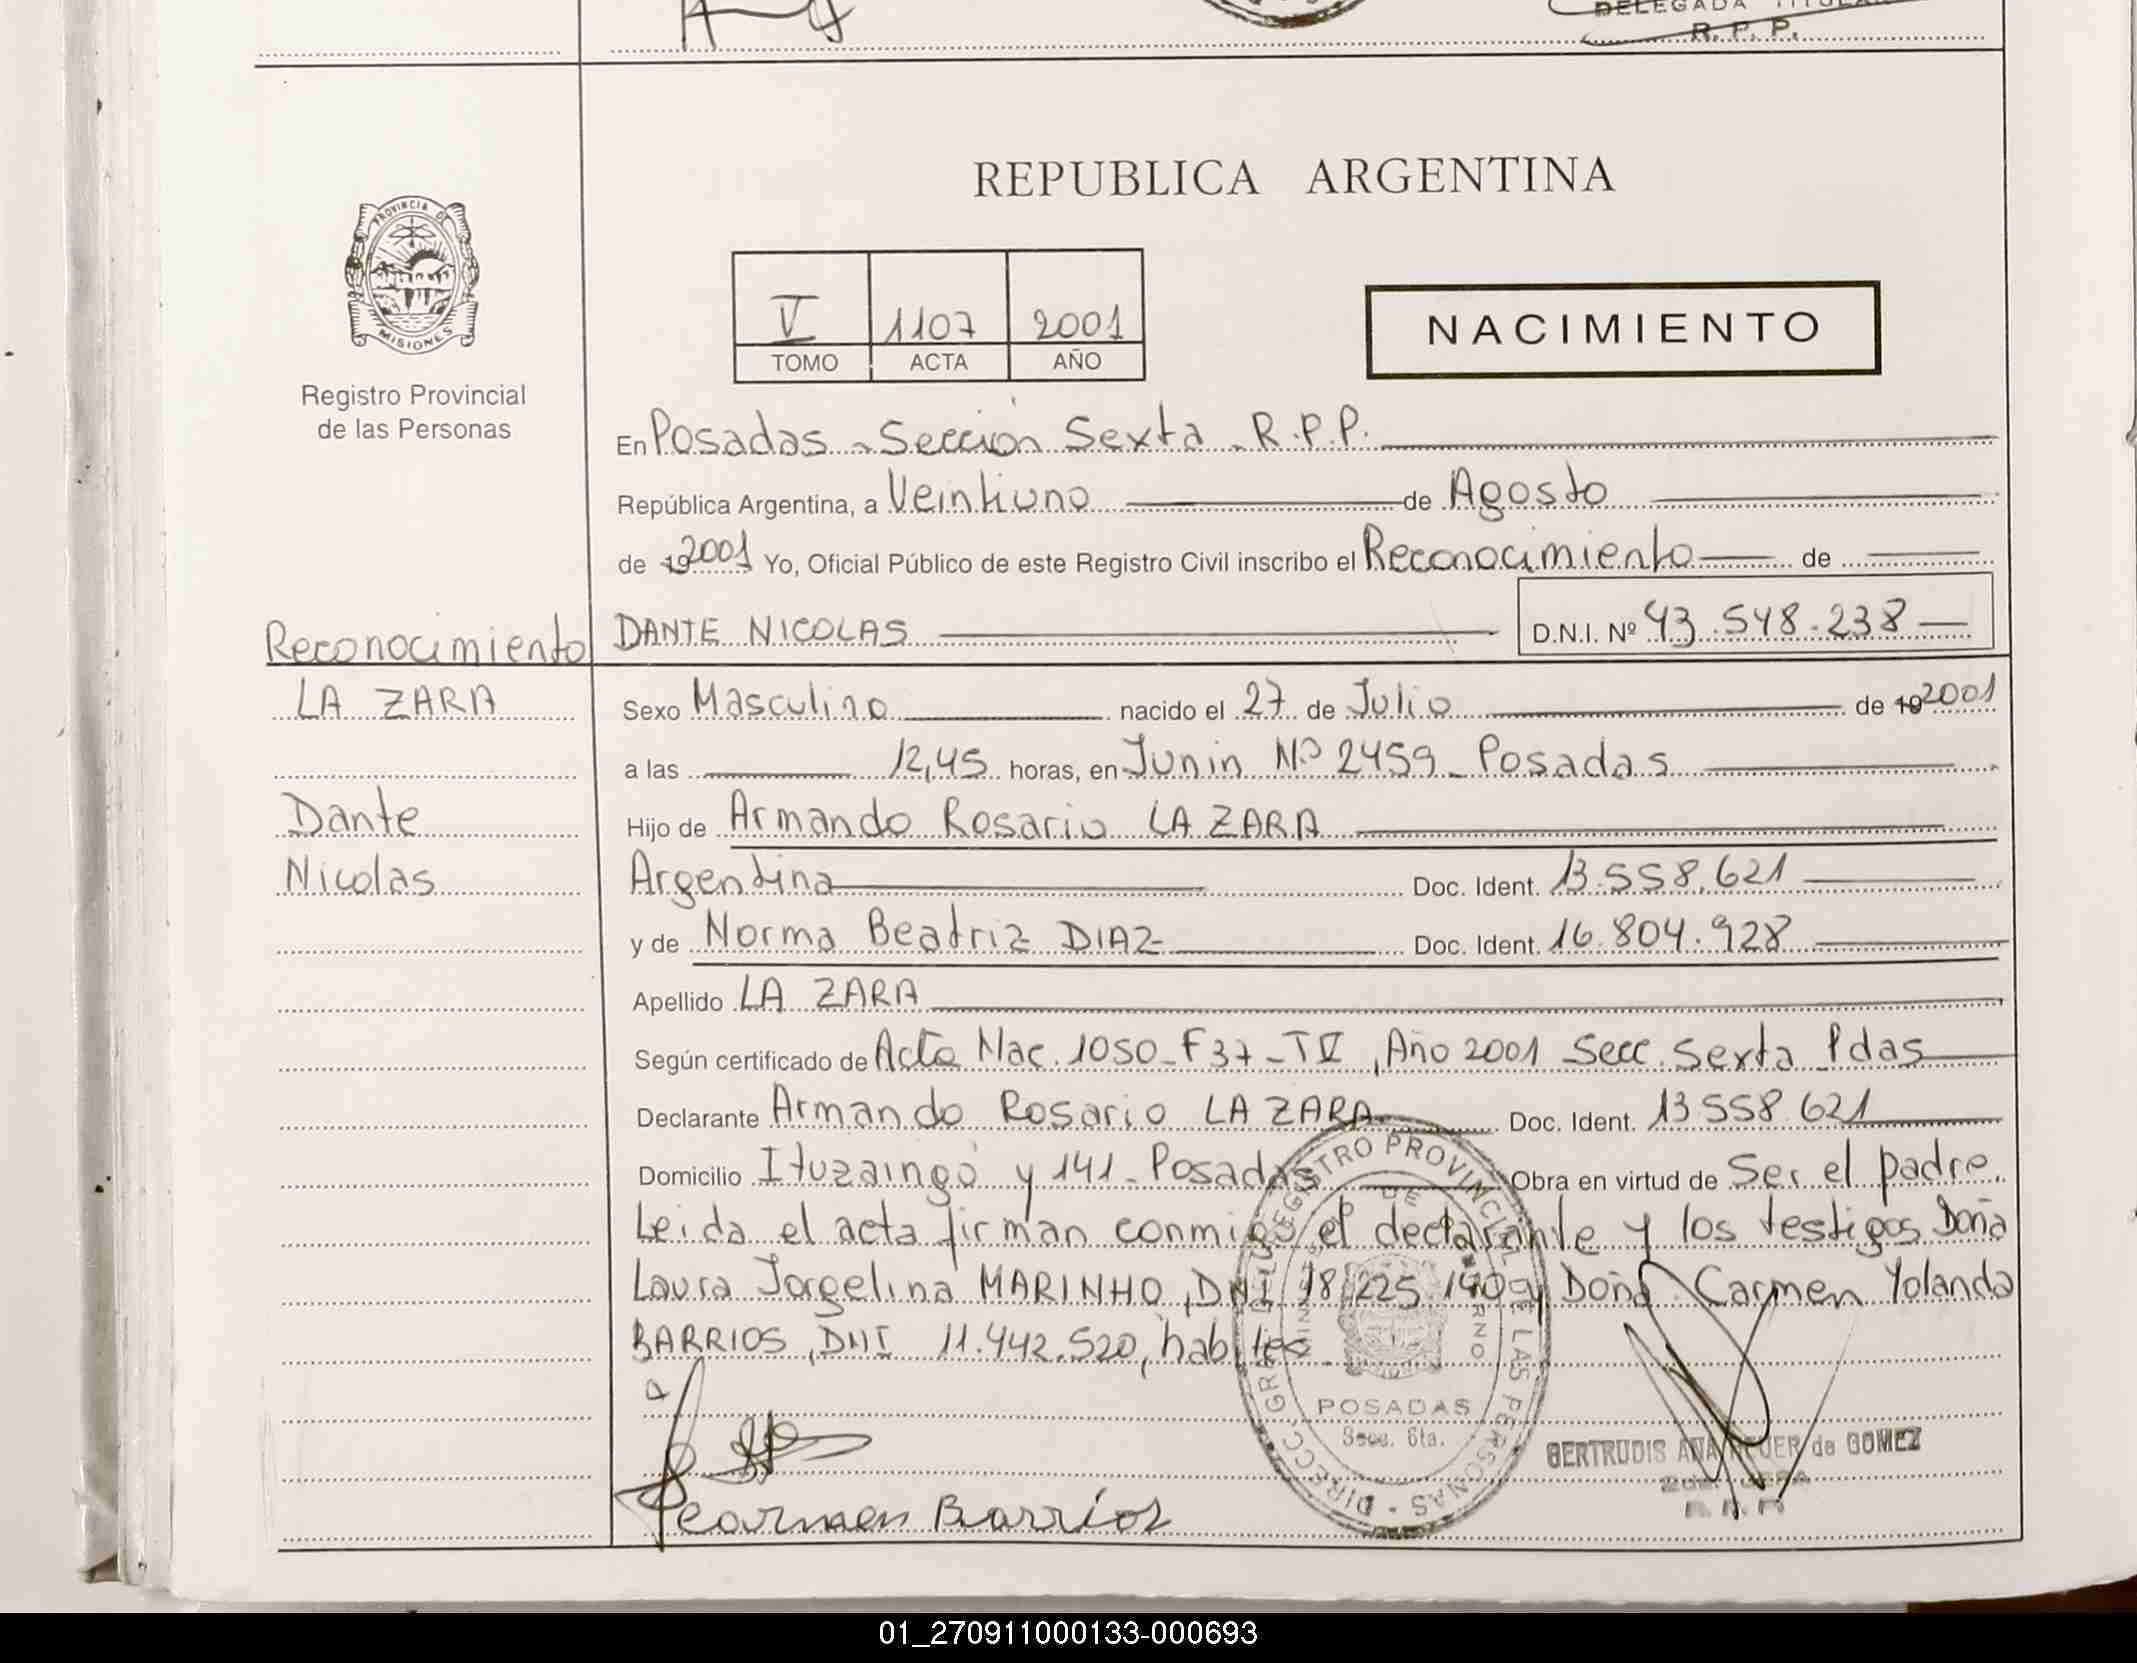 DELEGADA TITULAR
R. P. P.
REPUBLICA ARGENTINA
PROVINCIA DE
MISIONES
Registro Provincial
de las Personas
V 1107 2001
TOMO ACTA AÑO
NACIMIENTO
En Posadas - Sección Sexta - R.P.P.
República Argentina, a Veintiuno de Agosto
de 19 2001 Yo, Oficial Público de este Registro Civil inscribo el Reconocimiento de
DANTE NICOLAS D.N.I. Nº 43.548.238
Reconocimiento
LA ZARA
Dante
Nicolas
Sexo Masculino nacido el 27 de Julio de 19 2001
a las 12,45 horas, en Junin Nº 2459 - Posadas
Hijo de Armando Rosario LA ZARA
Argentina Doc. Ident. 13.558.621
y de Norma Beatriz DIAZ Doc. Ident. 16.804.928
Apellido LA ZARA
Según certificado de Acta Nac. 1050 - F 37 - T V, Año 2001 Secc. Sexta Pdas
Declarante Armando Rosario LA ZARA Doc. Ident. 13.558.621
Domicilio Ituzaingó y 141 - Posadas Obra en virtud de Ser el padre.
Leida el acta firman conmigo el declarante y los testigos Doña
Laura Jorgelina MARINHO, DNI 18.225.140 y Doña Carmen Yolanda
BARRIOS, DNI 11.442.520, habiles
Carmen Barrios
DIRECC. GRAL. DEL REGISTRO PROVINCIAL DE LAS PERSONAS
POSADAS
Secc. 6ta.
GERTRUDIS ANA de GOMEZ
R. P. P.
01_270911000133-000693